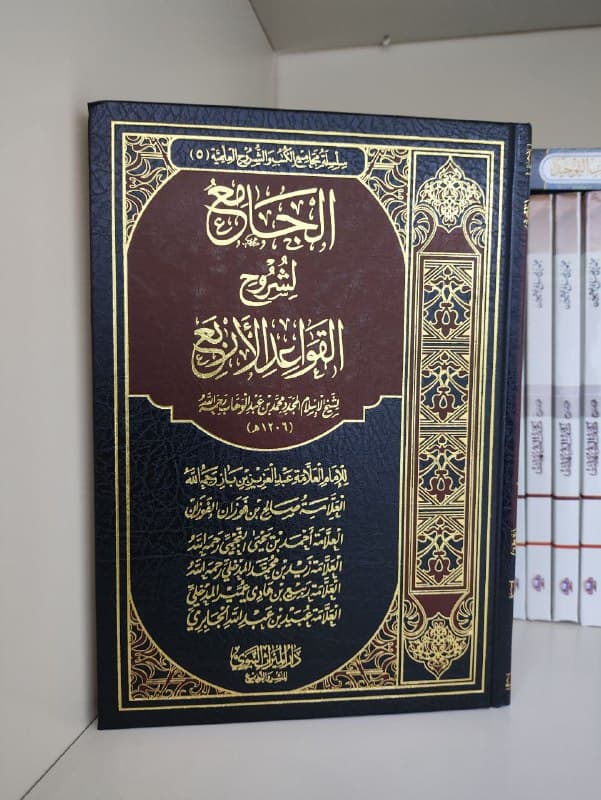 سلسلة مجاميع الكتب والشروح العلمية (٥)
الجامع
لشروح
القواعد الأربع
لشيخ الإسلام المجدد محمد بن عبد الوهاب رحمه الله
(١٢٠٦هـ)
للإمام العلامة عبد العزيز بن باز رحمه الله
العلامة صالح بن فوزان الفوزان
العلامة أحمد بن يحيى النجمي رحمه الله
العلامة زيد بن محمد المدخلي رحمه الله
العلامة ربيع بن هادي عمير المدخلي
العلامة عبيد بن عبد الله الجابري
دار الميراث النبوي
للنشر والتوزيع